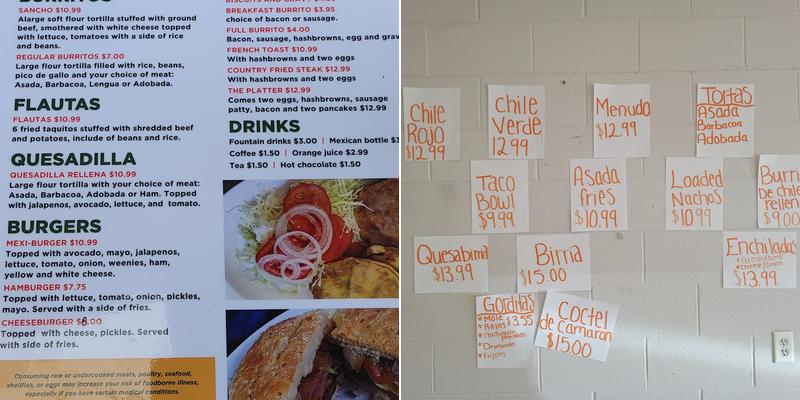 BURRITOS
SANCHO $10.99
Alarge soft flour tortilla stuffed with ground
beef, smothered with white cheese topped
with lettuce, tomatoes with a side of rice
and beans.
REGULAR BURRITOS $7.00
Large flour tortilla filled with rice, beans,
pico de gallo and your choice of meat:
Asada, Barbacoa, Lengua or Adobada.
FLAUTAS
FLAUTAS $10.99
6 fried taquitos stuffed with shredded beef
and potatoes, include of beans and rice.
QUESADILLA
QUESADILLA RELLENA $10.99
Large flour tortilla with your choice of meat:
Asada, Barbacoa, Adobada or Ham. Topped
with jalapenos, avocado, lettuce, and tomato.
BURGERS
MEXI-BURGER $10.99
Topped with avocado, mayo, jalapenos,
lettuce, tomato, onion, weenies, ham,
yellow and white cheese.
HAMBURGER $7.75
Topped with lettuce, tomato, onion, pickles,
mayo. Served with a side of fries.
CHEESEBURGER $8.00
Topped with cheese, pickles. Served
with side of fries.
Consuming raw or undercooked meats, poultry, seafood,
shellfish, or eggs may increase your risk of foodborne illness,
especially if you have certain medical conditions.
BISCUITS AND GRAVY
BREAKFAST BURRITO $3.95
choice of bacon or sausage.
FULL BURRITO $4.00
Bacon, sausage, hashbrowns, egg and grav
FRENCH TOAST $10.99
With hashbrowns and two eggs
COUNTRY FRIED STEAK $12.99
With hashbrowns and two eggs
THE PLATTER $12.99
Comes two eggs, hashbrowns, sausage
patty, bacon and two pancakes $12.99
DRINKS
Fountain drinks $3.00 | Mexican bottle $3
Coffee $1.50 | Orange juice $2.99
Tea $1.50 | Hot chocolate $1.50
Chile
Rojo
$12.99
Chile
Verde
12.99
Menudo
$12.99
Tortas
Asada
Barbacoa
Adobada
Taco
Bowl
$9.99
Asada
fries
$10.99
Loaded
Nachos
$10.99
Burri
De chile
rellen
$9.00
Quesabirria
$13.99
Birria
$15.00
Enchiladas
*Ground beef
*Cheese/onion
$13.99
Gorditas
*Mole $3.55
*Rojas
*Chicharron
prensado
*Deshebrada
*Frijoles
Coctel
de camaron
$15.00